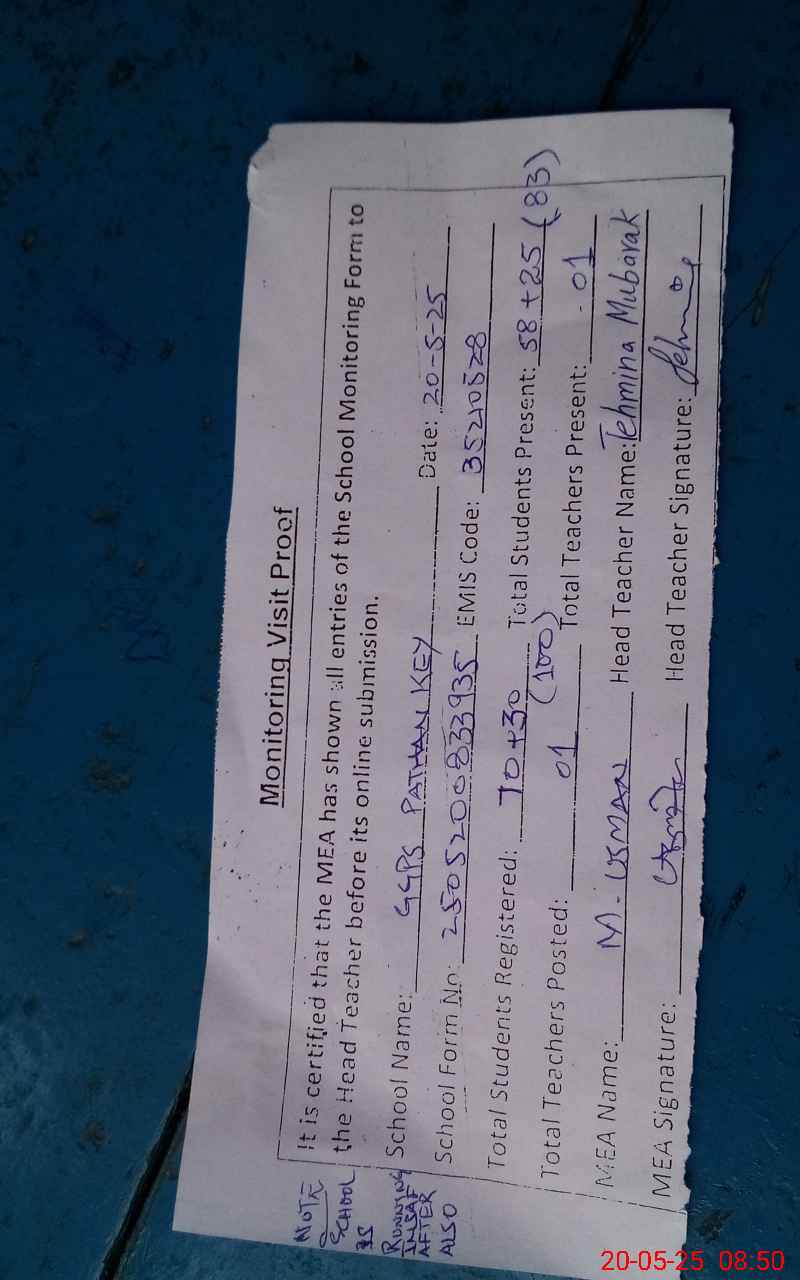 Monitoring Visit Proof
It is certified that the MEA has shown all entries of the School Monitoring Form to
the Head Teacher before its online submission.
School Name: GGPS PATHAN KEY Date: 20-5-25
School Form No: 2505200833935 EMIS Code: 35210528
Total Students Registered: 70+30 (100) Total Students Present: 58+25 (83)
Total Teachers Posted: 01 Total Teachers Present: 01
MEA Name: M. USMAN Head Teacher Name: Tehmina Mubarak
MEA Signature: Head Teacher Signature:
NOTE
SCHOOL
IS
RUNNING
INSAF
AFTER
ALSO
20-05-25 08:50